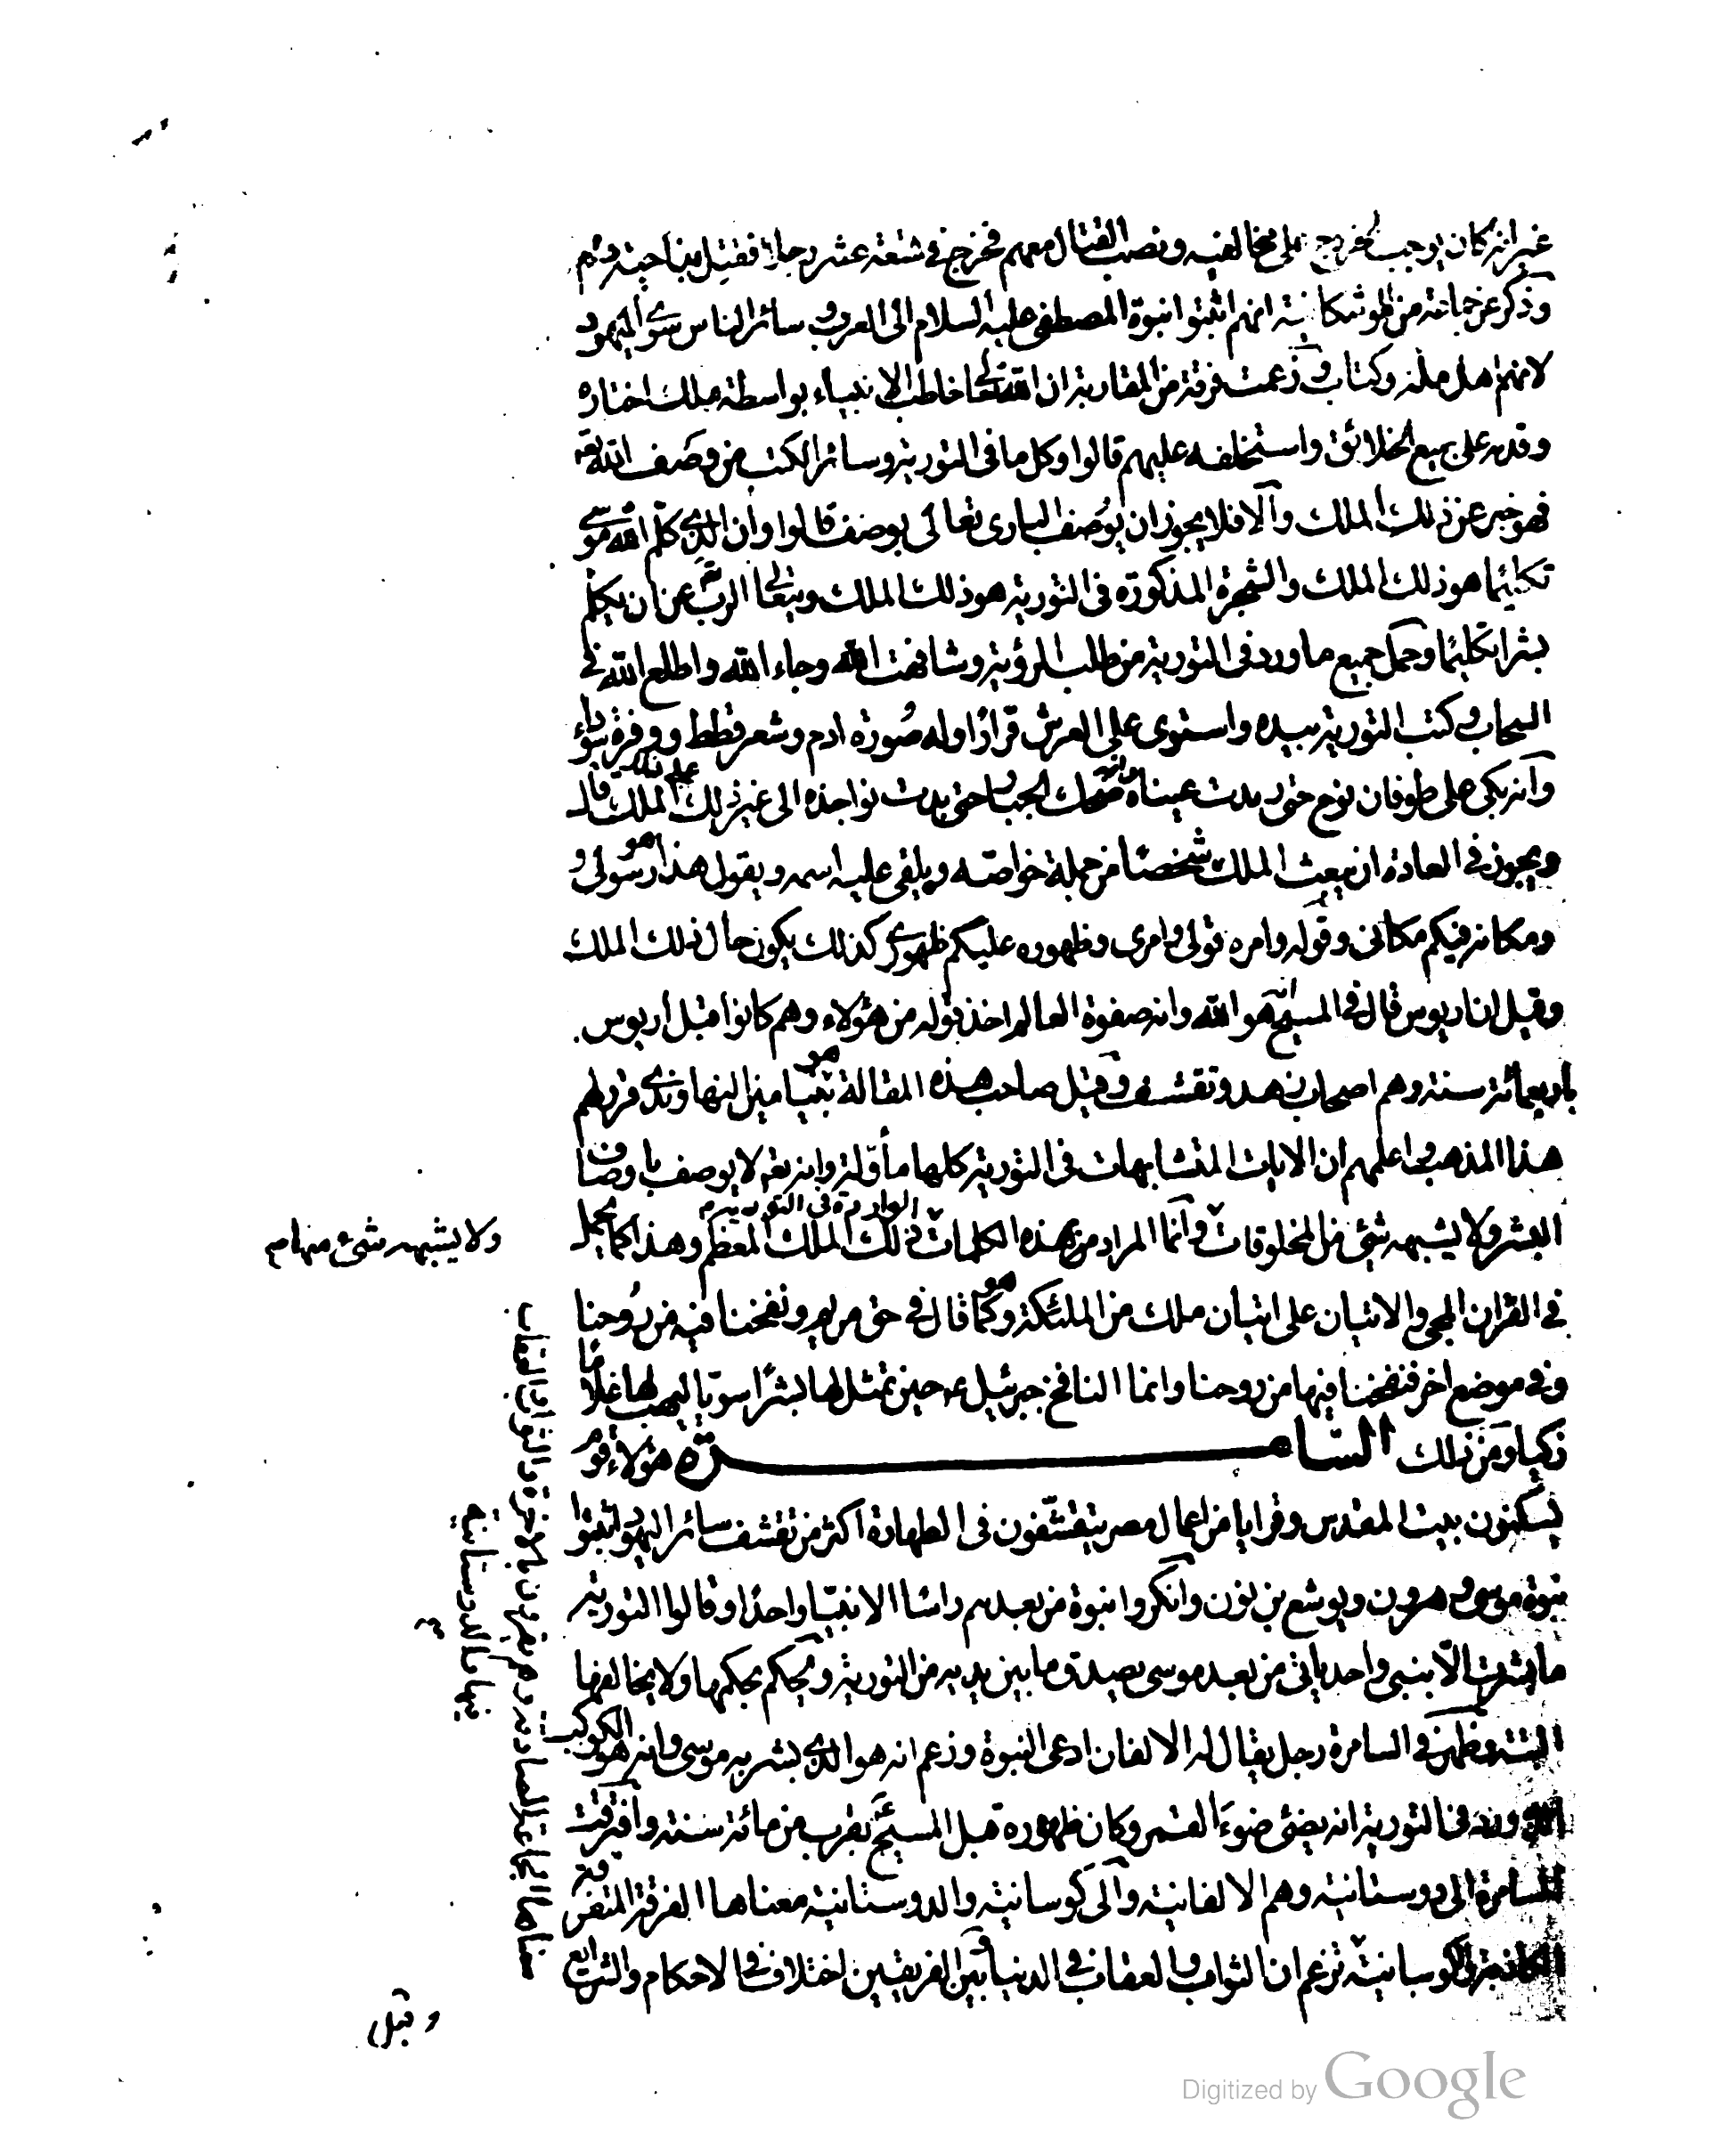 غير انه كان يوجب الخروج على مخالفيه ونصب القتال معهم فخرج في تسعة عشر رجلا فقتل بناحية قم
وذكر عن جماعة من الموشكانية انهم اثبتوا نبوة المصطفى عليه السلام الى العرب وسائر الناس سوى اليهود
لانهم اهل ملة وكتاب وزعمت فرقة من المقاربة ان الله تعالى خاطب الانبياء بواسطة ملك اختاره
وقدمه على جميع الخلائق واستخلفه عليهم قالوا وكل ما في التورية وسائر الكتب من وصف الله تعه
فهو خبر عن ذلك الملك والا فلا يجوز ان يوصف البارى تعالى بوصف قالوا وان الذي كلم الله موسى
تكليما هو ذلك الملك والشجرة المذكورة في التورية هو ذلك الملك ويتعالى الرب عن ان يكلم
بشرا تكليما وحمل جميع ما ورد في التورية من طلب الرؤية وشافهت الله وجاء الله واطلع الله في
السحاب وكتب التورية بيده واستوى على العرش قرارا وله صورة ادم وشعر قطط ووفرة سوداء
وانه بكى على طوفان نوح حتى رمدت عيناه وانه ضحك الجبار حتى بدت نواجذه الى غير ذلك على ذلك الملك قال
ويجوز في العادة ان يبعث الملك شخصا من جملة خواصه ويلقى عليه اسمه ويقول هذا هو رسولى و
ومكانه فيكم مكانى وقوله وامره قولى وامرى وظهوره عليكم ظهورى كذلك يكون حال ذلك الملك
وقيل ان اريوس قال في المسيح انه هو الله وانه صفوة العالم اخذ قوله من هؤلاء وهم كانوا قبل اريوس
باربعمائة سنة وهم اصحاب زهد وتقشف وقيل صاحب هذه المقالة هو بنيامين النهاوندى قرر لهم
هذا المذهب واعلمهم ان الايات المتشابهات في التورية كلها مأولة وانه تعه لا يوصف باوصاف
البشر ولا يشبه شئ من المخلوقات وانما المراد من بهذه الكلمات الواردة في التورية ذلك الملك المعظم وهذا كما يحمل
ولا يشبهه شئ منها م
في القران المجئ والاتيان على اتيان ملك من الملئكة وهو كما قال في حق مريم ونفخنا فيه من روحنا
وفي موضع اخر فنفخنا فيها من روحنا وانما النافخ جبرئيل عم حين تمثل لها بشرا سويا ليهب لها غلاما
زكيا ومن ذلك السامرة هؤلاء قوم
يسكنون بيت المقدس وقرايا من اعمال مصر يتقشفون في الطهارة اكثر من تقشف سائر اليهود اثبتوا
نبوة موسى وهرون ويوشع بن نون وانكروا نبوة من بعدهم راسا الا نبيا واحدا وقالوا التورية
ما بشرت الا بنبى واحد ياتى من بعد موسى يصدق ما بين يديه من التورية ويحكم بحكمها ولا يخالفها
البتة وظهر في السامرة رجل يقال له الالفان ادعى النبوة وزعم انه هو الذي بشر به موسى وانه هو الكوكب
الذي ورد في التورية انه يضئ ضوء القمر وكان ظهوره قبل المسيح بقرب من مائة سنة وافترقت
السامرة الى دوستانية وهم الالفانية والى كوسانية والدوستانية معناها الفرقة المتفرقة
الكاذبة والكوسانية تزعم ان الثواب والعقاب في الدنيا وبين الفريقين اختلاف في الاحكام والشرايع
معناها الجماعة الصادقة وهم يقرون بالاخرة والثواب والعقاب
فيها والدوستانية
وقبل
Digitized by Google